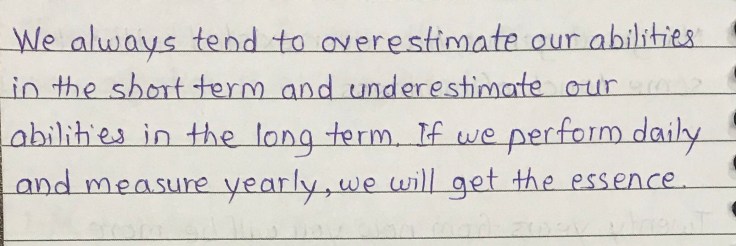 We always tend to overestimate our abilities
in the short term and underestimate our
abilities in the long term. If we perform daily
and measure yearly, we will get the essence.